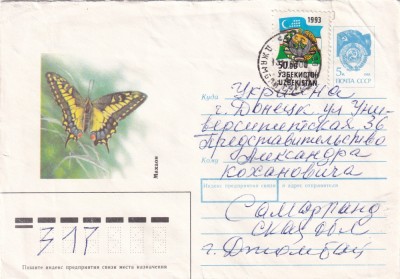 1993
50.00
ЎЗБЕКИСТОН
UZBEKISTAN
5к
ПОЧТА СССР
Куда Украина
г. Донецк ул Уни-
верситетская 36
Представительство
Кому Александра
Кохановича
Индекс предприятия связи и адрес отправителя
Самарканд-
ская обл
г. Джамбай
Махаон
317
Пишите индекс предприятия связи места назначения